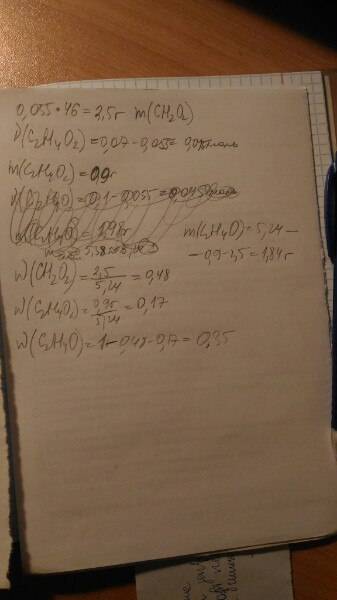 0,055*46=2,5г m(CH2O2)
ν(C2H4O2)=0,07-0,055=0,015моль
m(C2H4O2)=0,9г
ν(C2H4O)=0,1-0,055=0,045моль
m(C2H4O)=1,98г
m(C2H4O)=5,24-
-0,9-2,5=1,84г
W(CH2O2)=2,5/5,24=0,48
W(C2H4O2)=0,9г/5,24=0,17
W(C2H4O)=1-0,48-0,17=0,35